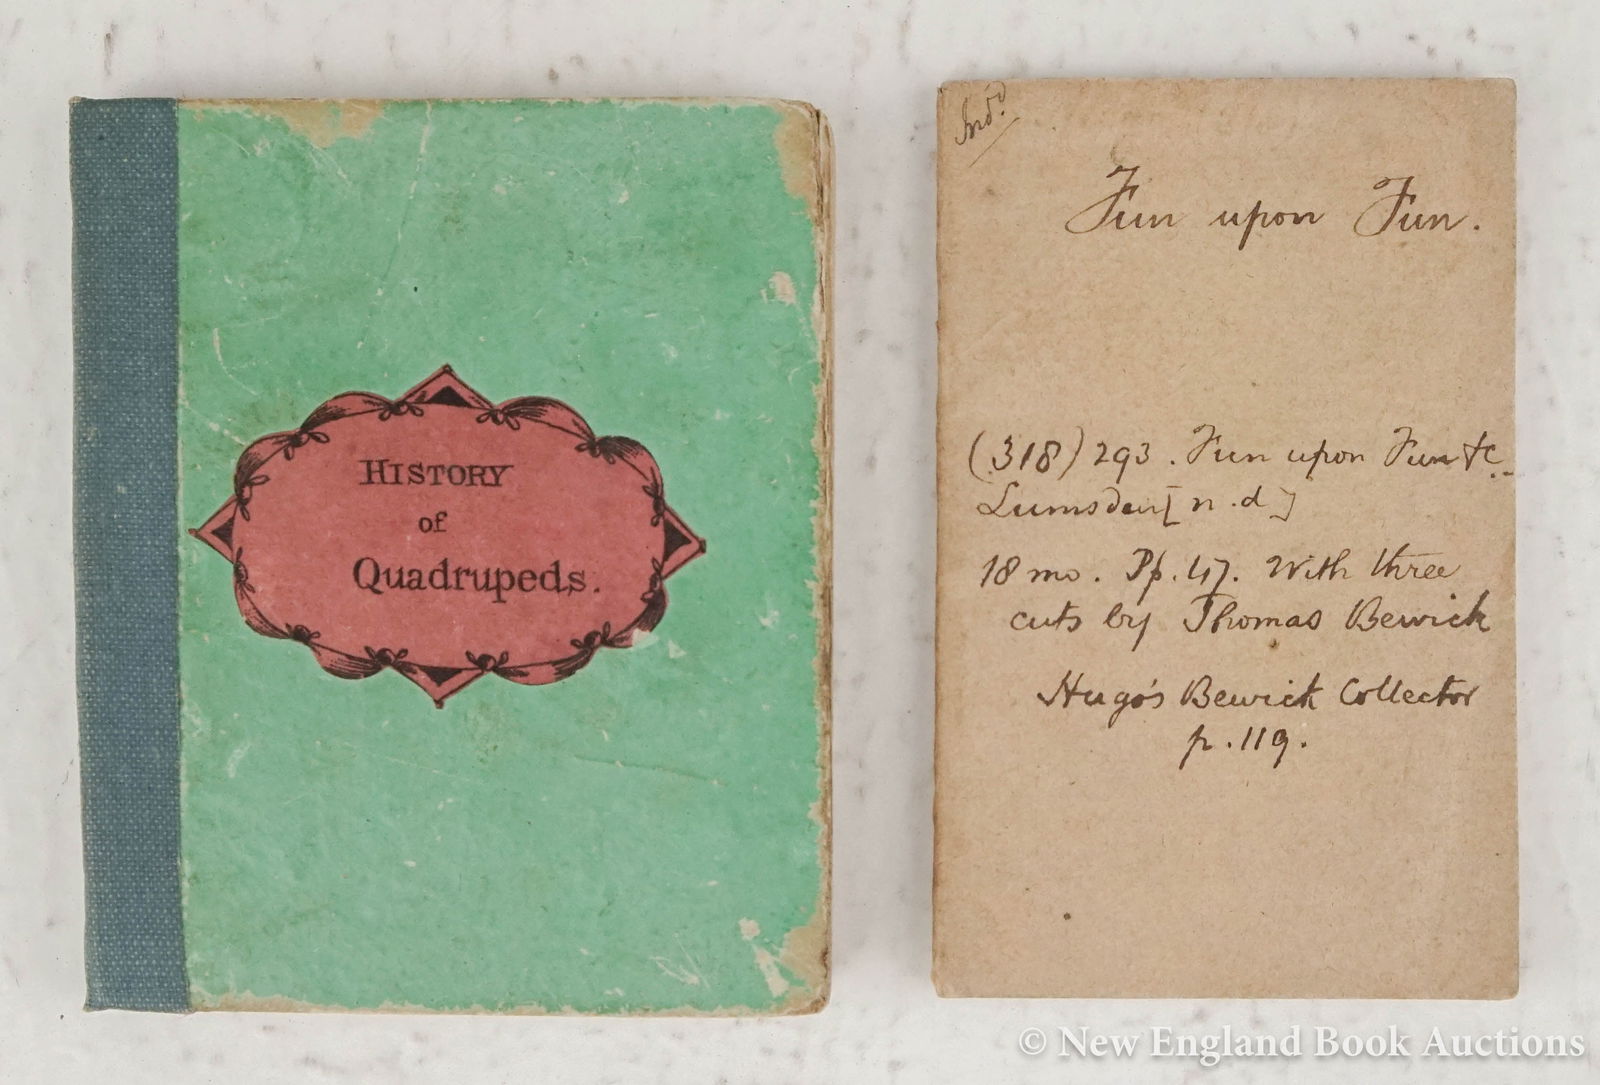 HISTORY
of
Quadrupeds.
Fun upon Fun.
(318) 293. Fun upon Fun &c.
Lumsden [n.d]
18 mo. Pp. 47. With three
cuts by Thomas Bewick
Hugo's Bewick Collector
p. 119.
© New England Book Auctions